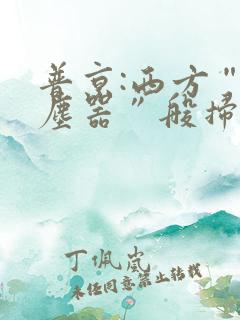 普京:西方＂
塵器＂般掃
丁佩嵐
未经同意禁止转载